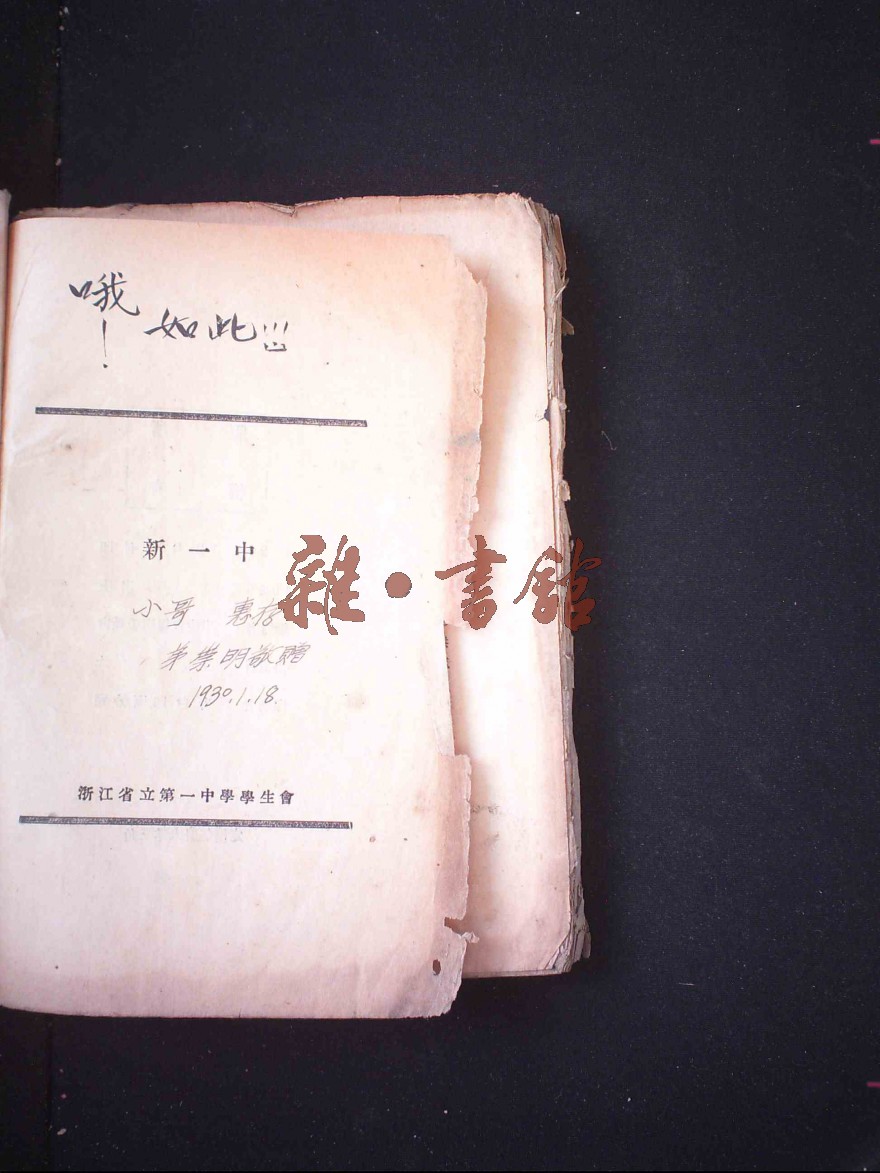 哦！如此!!!
新一中
小哥 惠存
弟崇明敬贈
1930.1.18.
浙江省立第一中學學生會
雜·書館